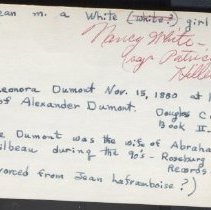 ean m. a White (white?) girl
Nancy White -
says Patrici
Hille
eonora Dumont Nov. 15, 1880 at
of Alexander Dumont.
Douglas C
Book II
e Dumont was the wife of Abraha
ilbeau during the 90's - Roseburg
Records
vorced from Jean Laframboise?)